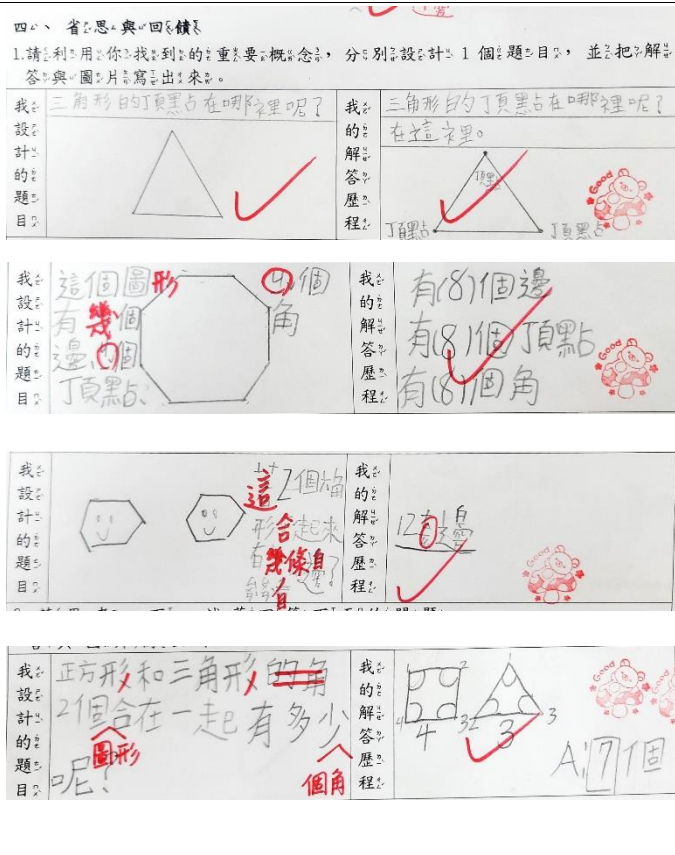 四、省思與回饋
1.請利用你找到的重要概念,分別設計 1 個題目,並把解
答與圖片寫出來。
我設計的題目
三角形的頂點在哪裡呢?
我的解答歷程
三角形的頂點在哪裡呢?
在這裡。
頂點
頂點
頂點
Good
我設計的題目
這個圖形
有幾個
邊、個
頂點、
個
角
我的解答歷程
有(8)個邊
有(8)個頂點
有(8)個角
Good
我設計的題目
這2個
形合起來
幾條
邊?
我的解答歷程
12 邊
Good
我設計的題目
正方形和三角形的角
2個合在一起有多少
圖形
個角
呢?
我的解答歷程
2
4
3
4
2
3
3
A:7個
Good